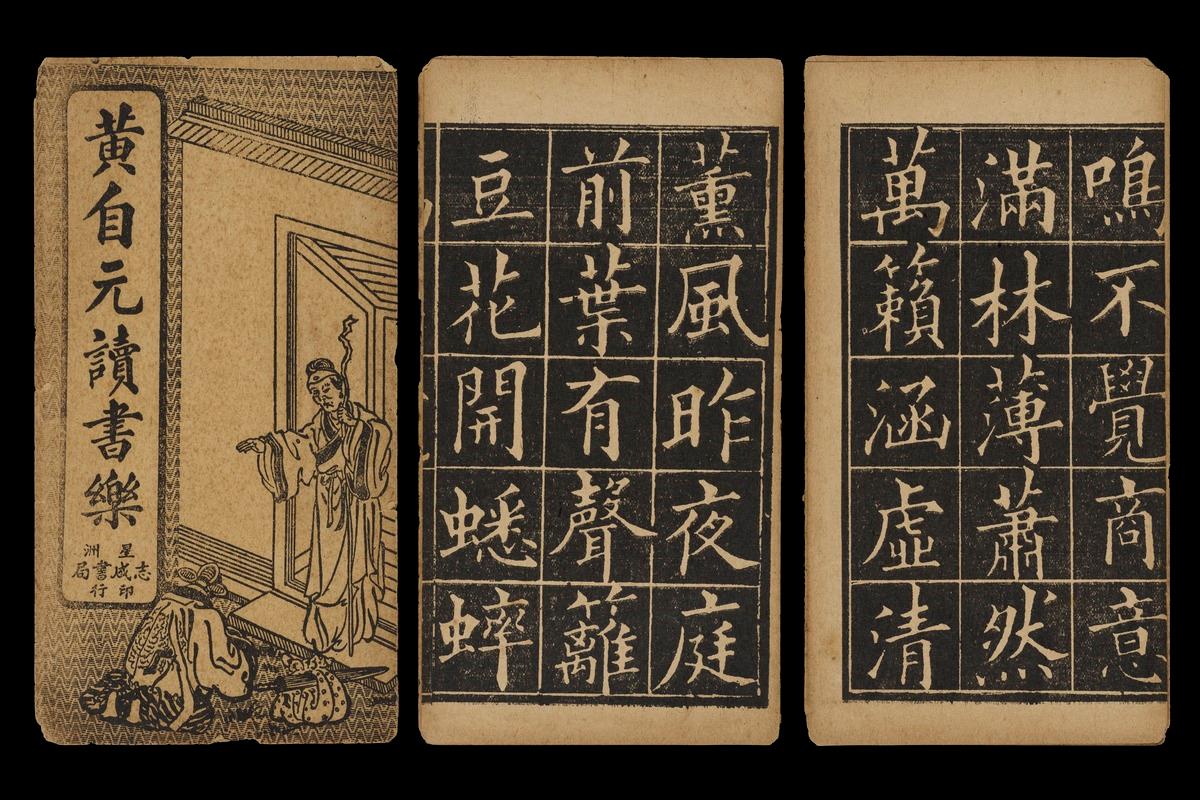 黄自元讀書樂
星洲
志成書局
印行
薰風昨夜庭
前葉有聲籬
豆花開蟋蟀
鳴不覺商意
滿林薄蕭然
萬籟涵虛清